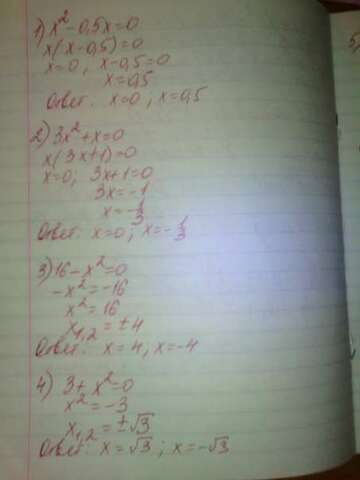 1) x² - 0,5x = 0
x(x - 0,5) = 0
x = 0, x - 0,5 = 0
x = 0,5
Ответ: x = 0; x = 0,5
2) 3x² + x = 0
x(3x + 1) = 0
x = 0; 3x + 1 = 0
3x = -1
x = -1/3
Ответ: x = 0; x = -1/3
3) 16 - x² = 0
-x² = -16
x² = 16
x₁,₂ = ±4
Ответ: x = 4; x = -4
4) 3 + x² = 0
x² = -3
x₁,₂ = ±√3
Ответ: x = √3; x = -√3
5)